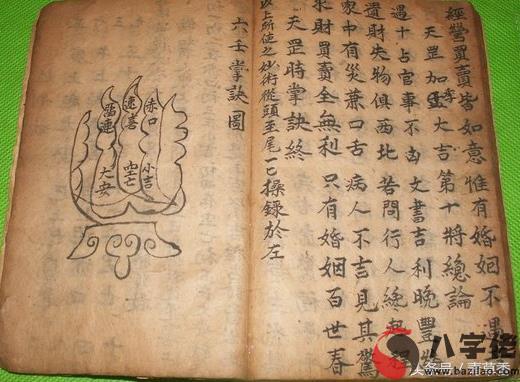 經營買賣皆如意惟有婚姻不遇
天罡加大吉第十將總論
遇十占官事不凶文書吉利晚豐收
遺財失物俱西北若問行人終起程
家中有災口舌病人不吉見其驚
求財買賣全無利 只有婚姻百世春
天罡時掌訣終
以上所使之妙術從頭至尾一已操錄於左
六壬掌訣圖
赤口
速喜
留連
小吉
空亡
大安
八字
www.bazilao.com